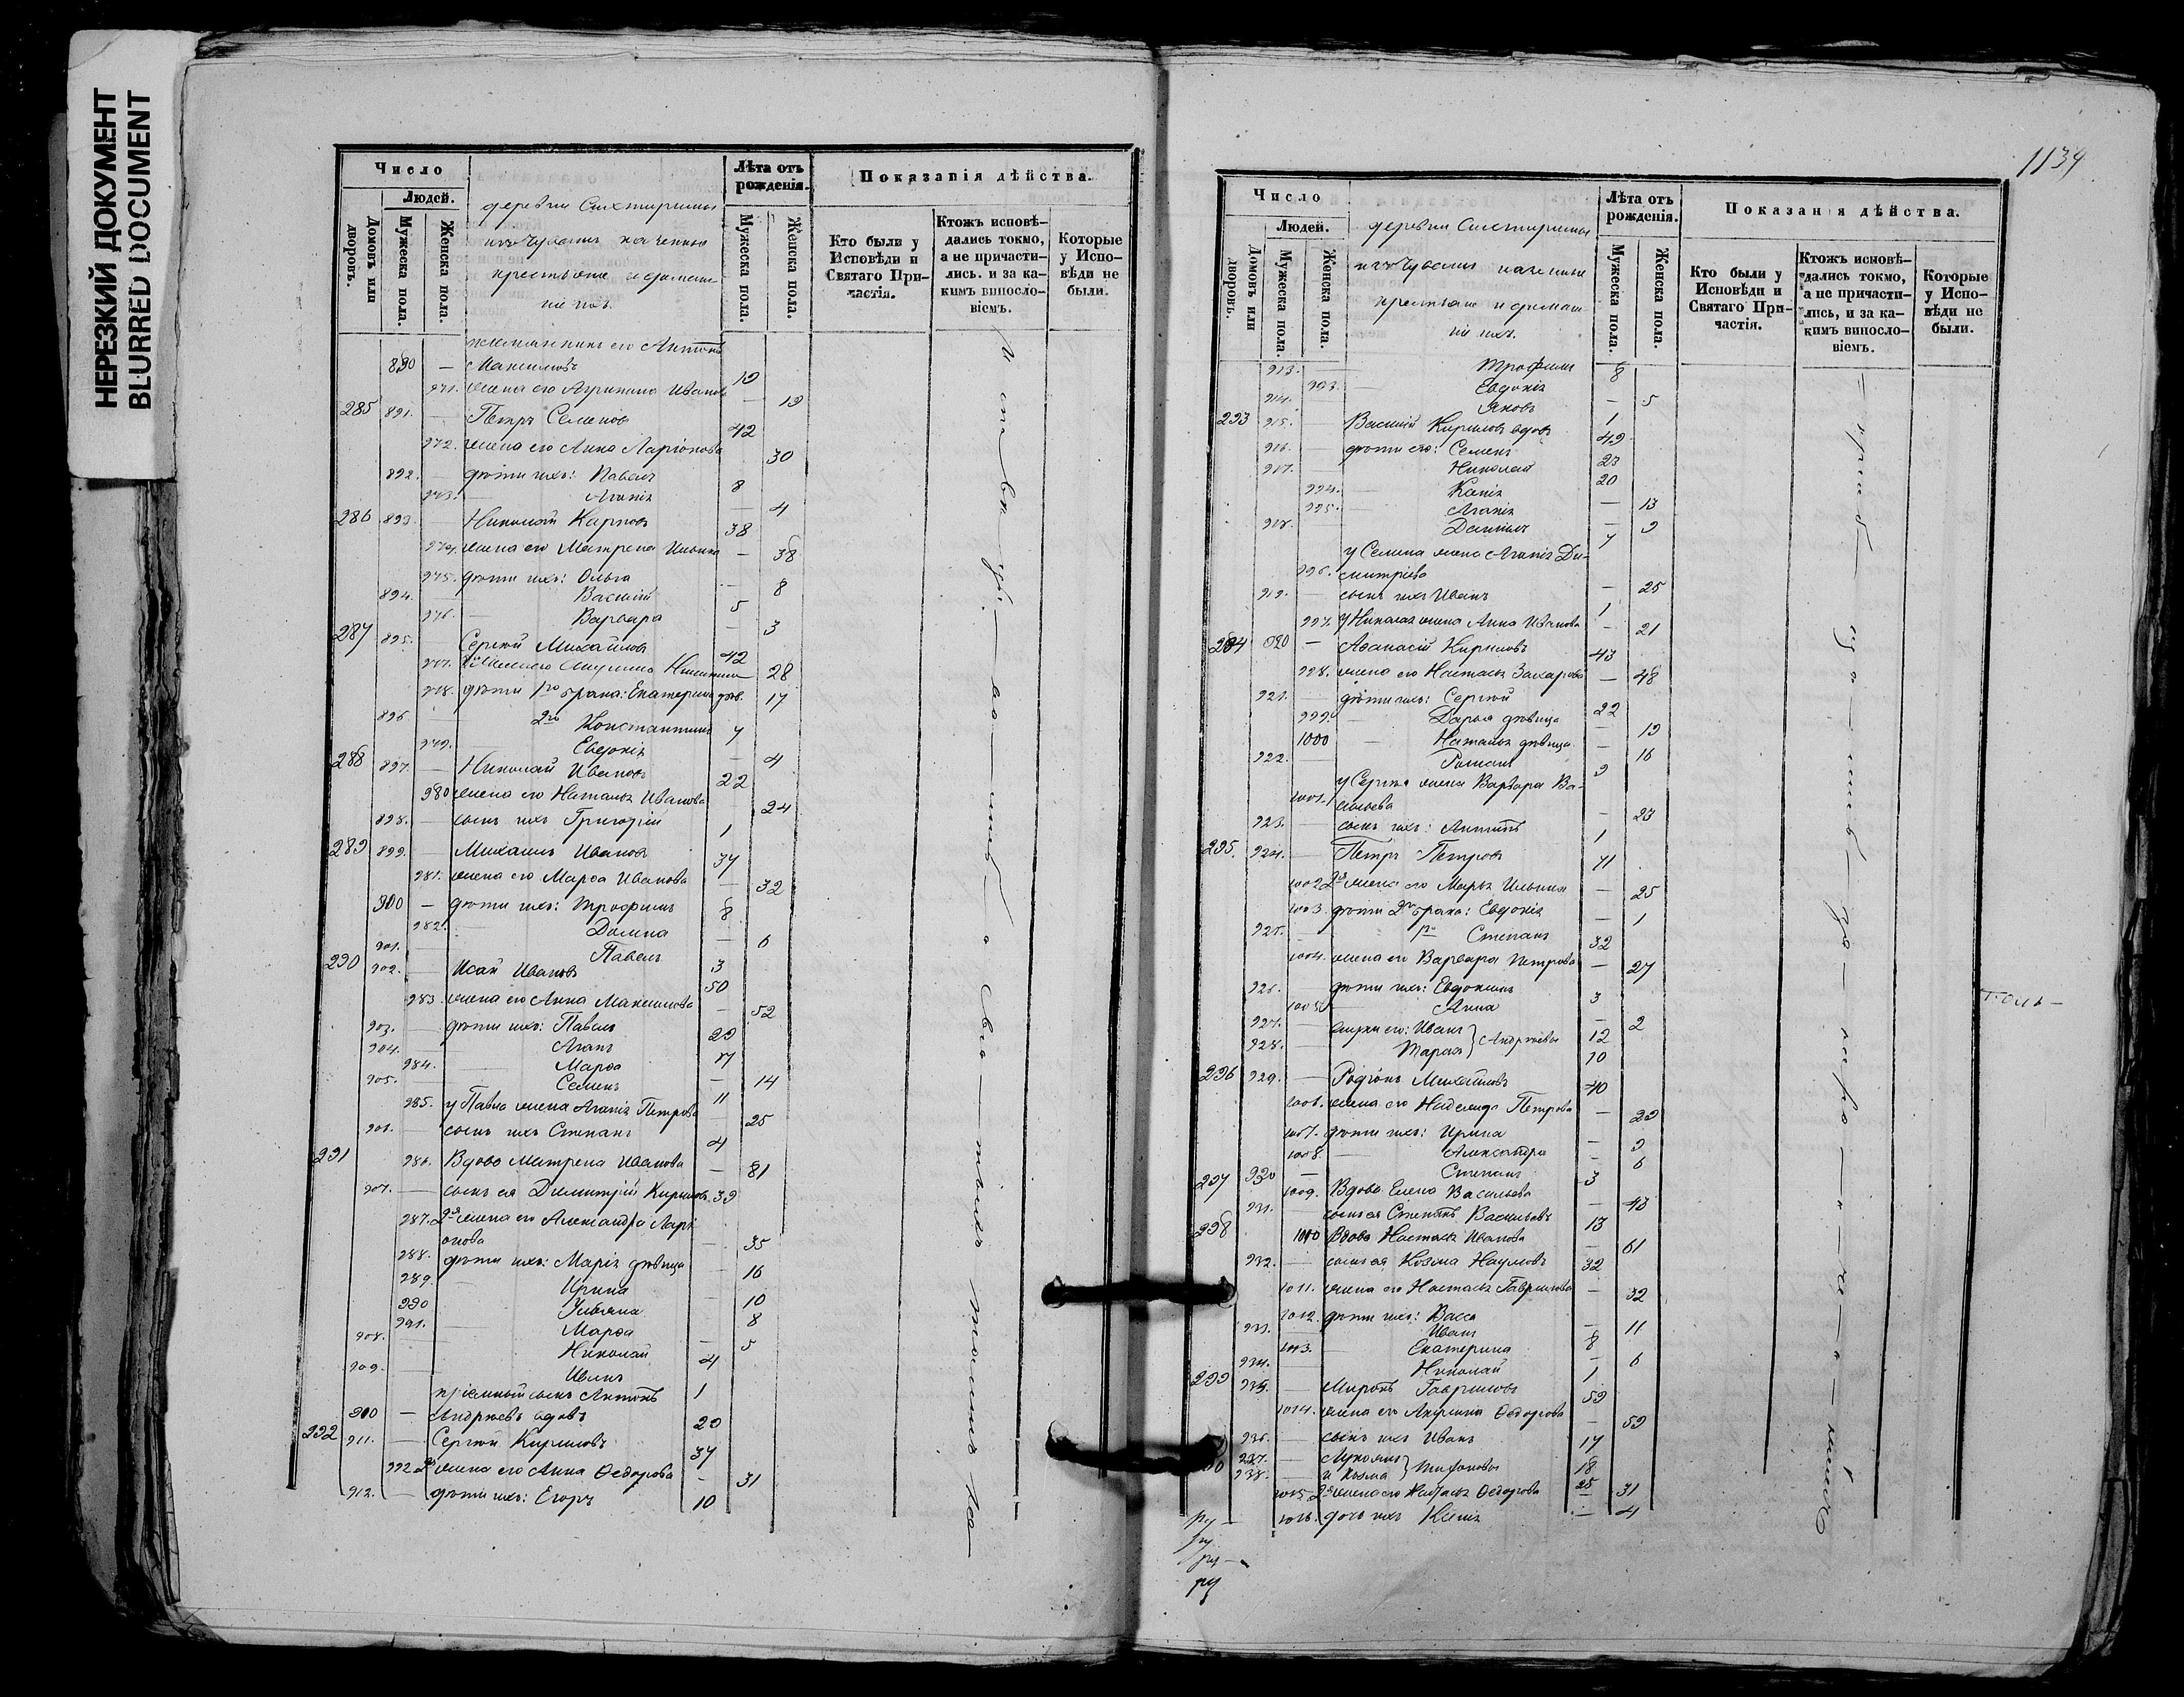 НЕРЕЗКИЙ ДОКУМЕНТ
BLURRED DOCUMENT
Число
Людей.
Домовъ или дворовъ.
Мужеска пола.
Женска пола.
деревни Сихтирины
изъ Чувашъ казенные
крестьяне и домаш
ніе ихъ.
Лѣта отъ рожденія.
Мужеска пола.
Женска пола.
Показанія дѣйства.
Кто были у Исповѣди и Святаго Причастія.
Ктожъ исповѣдались токмо, а не причастились. и за какимъ винословіемъ.
Которые у Исповѣди не были.
племянникъ его Антонъ
890 — Максимовъ 19
971. жена его Агрипина Иванова — 19
285 891. — Петръ Семеновъ 42
972. жена его Анна Ларіонова 30
892. — дѣти ихъ: Павелъ 8
973. — Агапія — 4
286 893. — Николай Карповъ 38
974. жена его Матрена Ильина — 38
975. дѣти ихъ: Ольга — 8
894. — Василій 5
976. — Варвара — 3
287 895. Сергій Михайловъ 42
977. жена его Никитина 28
978. дѣти 1го брака: Екатерина дѣв. 17
896 — 2го Константинъ 7
979. Евдокія — 4
288 897. — Николай Ивановъ 22
980 жена его Наталья Иванова 24
898. — сынъ ихъ Григорій 1
289 899. — Михаилъ Ивановъ 37
981. жена его Марѳа Иванова — 32
900 — дѣти ихъ: Трофимъ 8
982. — Домна — 6
901. Павелъ 3
290 902. — Исай Ивановъ 50
983. жена его Анна Максимова — 52
903. — дѣти ихъ: Павелъ 29
904. — Агапъ 17
984. — Марѳа — 14
905. — Семенъ 11
985. у Павла жена Агапія Петрова — 25
906. — сынъ ихъ Степанъ 4
291 986. Вдова Матрена Иванова — 81
907. — сынъ ея Димитрій Кириловъ 39
987. 2я жена его Александра Ларі
онова — 35
988. дѣти ихъ: Марія дѣвица — 16
989. — Ирина — 10
990 Ульяна 8
991. — Марѳа — 5
908. — Николай 4
909. — Иванъ 1
пріемный сынъ Антонъ
910 — Андреевъ вдовъ 20
292 911. — Сергій Кириловъ 37
992 2я жена его Анна Ѳедорова — 31
912. — дѣти ихъ: Егоръ 10
1134
Число
Людей.
Домовъ или дворовъ.
Мужеска пола.
Женска пола.
деревни Сихтирины
изъ Чувашъ казенные
крестьяне и домаш
ніе ихъ.
Лѣта отъ рожденія.
Мужеска пола.
Женска пола.
Показанія дѣйства.
Кто были у Исповѣди и Святаго Причастія.
Ктожъ исповѣдались токмо, а не причастились, и за какимъ винословіемъ.
Которые у Исповѣди не были.
913. — Трофимъ 8
993. — Евдокія — 5
914. Яковъ 1
293 915. — Василій Кириловъ вдовъ 49
916. — дѣти его: Семенъ 23
917. — Николай 20
994. — Капія — 13
995. — Агапія — 9
918. Даніилъ 7
у Семена жена Агапія Ди-
996. митріева — 25
919. — сынъ ихъ Иванъ 1
997. у Николая жена Анна Иванова — 21
294 920 — Аѳанасій Кириловъ 43
998. жена его Настасья Захарова — 48
921. — дѣти ихъ: Сергій 22
999. — Дарья дѣвица — 19
1000 — Наталья дѣвица — 16
922. — Романъ 9
у Сергія жена Варвара Ва-
1001. сильева — 23
923. — сынъ ихъ: Антипъ 1
295. 924. — Петръ Петровъ 71
1002 2я жена его Марья Ильина — 25
1003. дѣти 2го брака: Евдокія — 1
925. — 1го Степанъ 32
1004. жена его Варвара Петрова — 27
926. — дѣти ихъ: Евдокимъ 3
1005. Анна — 2
927. — его: Иванъ } Андреевы 12
928. — Тарасъ 10
296 929. — Родіонъ Михайловъ 40
1006. жена его Надежда Петрова — 29
1007. дѣти ихъ: Ирина — 9
1008. — Александра — 6
930 — Степанъ 3
297 1009. Вдова Елена Васильева — 43
931. — сынъ ея Степанъ Васильевъ 13
298 1010 Вдова Настасья Иванова — 61
932. — сынъ ея Козма Наумовъ 32
1011. жена его Настасья Гаврилова — 32
1012. дѣти ихъ: Васса — 11
933. Иванъ 8
1013. — Екатерина — 6
934. Николай 1
299 935. — Миронъ Гавриловъ 59
1014. жена его Акулина Ѳедорова — 59
936. — сынъ ихъ Иванъ 17
937. — Лукоянъ } Тифоновы 18
938. — и Козма 25
1015. 2я жена его Настасья Ѳедорова — 31
1016. дочь ихъ — 4